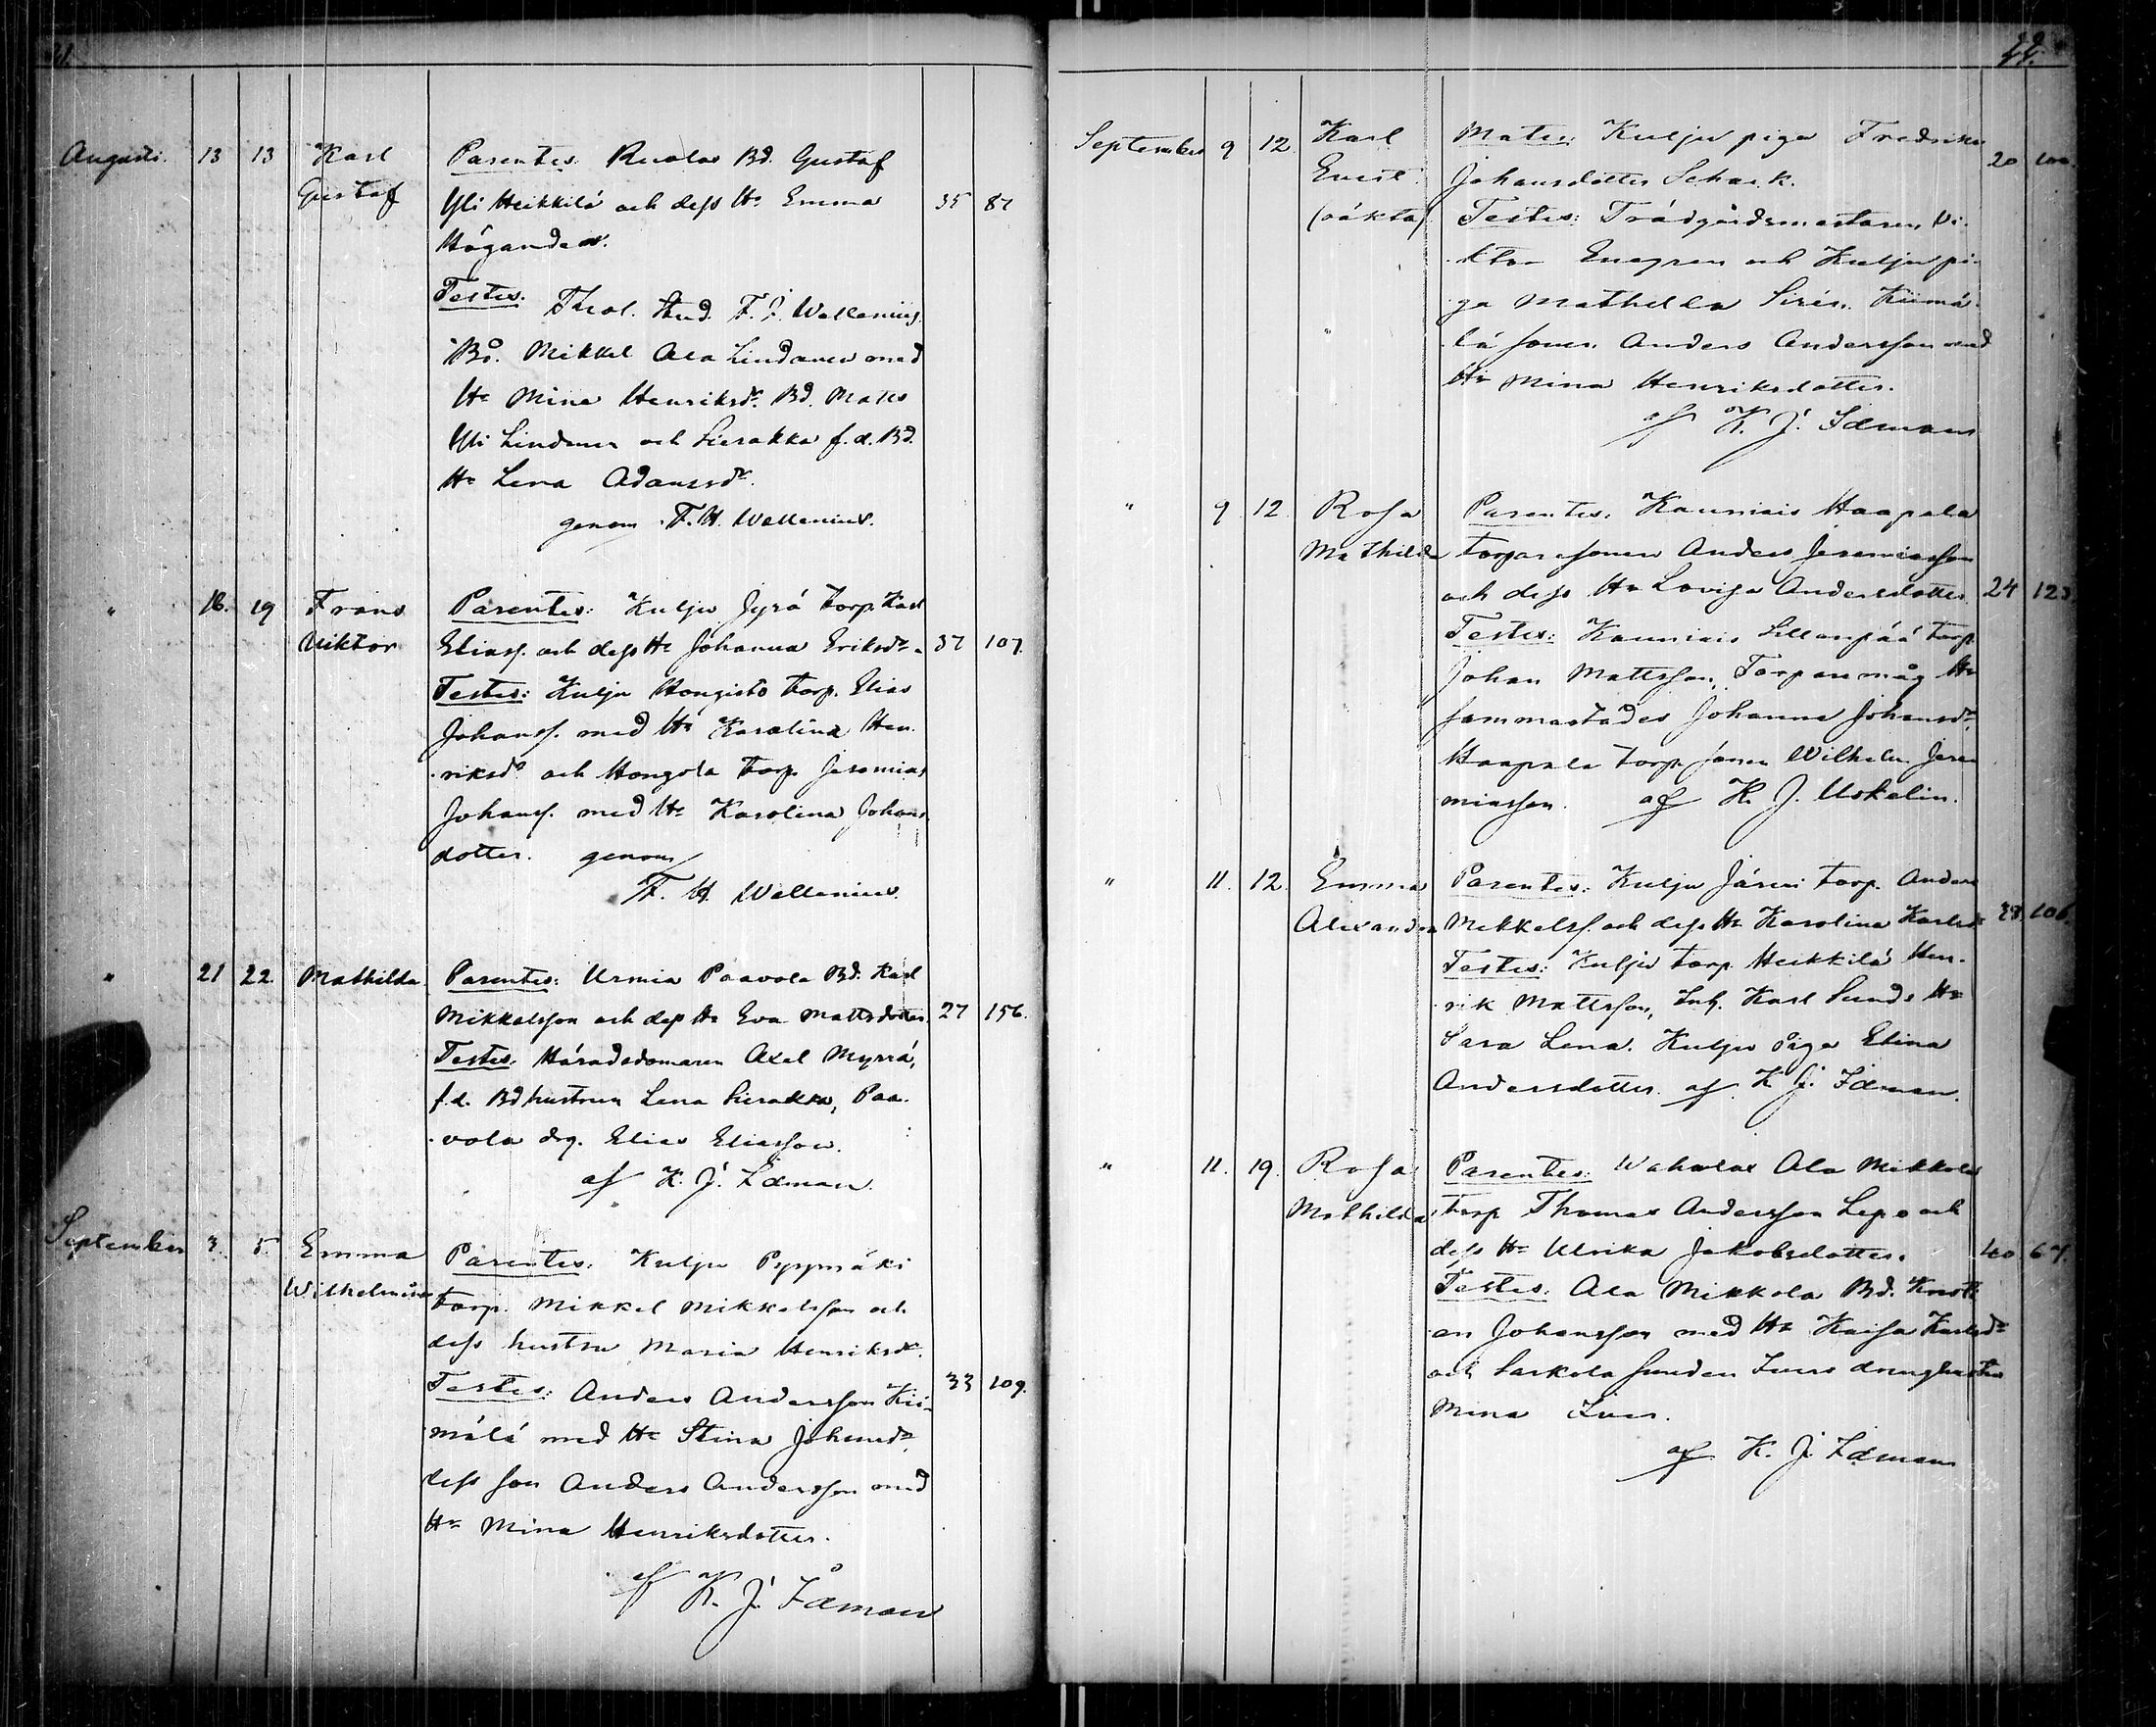 41.
Augusti. 13 13 Karl Parentes. Ruolas Bd. Gustaf
Gustaf Yli Heikkilä och dess Hu Emma 35 87
Högander.
Testes. Theol. Stud. F. J. Wallenius.
Bd. Mikkel Ala Lindamen med
Hu Mina Henriksdr. Bd. Matts
Yli Lindamen och Sierakka f. d. Bd.
Hu Lena Adamsdr.
genom F. H. Wallenius.
" 16. 19 Frans Parentes: Kulju Jyrä torp. Karl
Viktor Eliass. och dess Hu Johanna Eriksdr. 37 107.
Testes: Kulju Hongisto torp. Elias
Johanss. med Hu Karolina Hen-
riksdr och Hongola torp. Jeremias
Johanss. med Hu Karolina Johans
dotter. genom
F. H. Wallenius.
" 21 22. Mathilda. Parentes: Urmia Paavola Bd. Karl
Mikkelsson och dess Hu Eva Mattsdotter. 27 156.
Testes. Häradsdomaren Axel Myrrä,
f. d. Bd hustrun Lena Sierakka, Paa-
vola drg. Elias Eliasson.
af K. J. Idman.
September 3. 5. Emma Parentes. Kulju Pyymäki
Wilhelmina torp. Mikkel Mikkelsson och
dess hustru Maria Henriksdr.
Testes: Anders Andersson Kii- 33 109.
mälä med Hu Stina Johansdr,
dess son Anders Andersson med
Hu Mina Henriksdotter.
af K. J. Idman
42.
September 9 12. Karl Mater: Kulju piga Fredrika
Evert. Johansdotter Schack. 20 100.
(oäkta) Testes: Trädgårdsmästaren Vi-
ktor Enegren och Kulju pi-
ga Mathilda Sirén. Kiimä-
lä sonen Anders Andersson med
Hu Mina Henriksdotter.
af K. J. Idman
" 9. 12. Rosa Parentes. Kauniais Haapala
Mathilda torparesonen Anders Jeremiasson
och dess Hu Lovisa Andersdotter. 24 123.
Testes: Kauniais Sillanpää torp.
Johan Mattsson, Torparemåg Hu
sammastädes Johanna Johansdr.
Haapala torp. sonen Wilhelm Jere
miasson. af K. J. Uskelin.
" 11. 12. Emma Parentes: Kulju Järvi torp. Anders
Alexandra Mikkelss. och dess Hu Karolina Karlsdr 106.
Testes: Kulju torp. Heikkilä Hen-
rik Mattsson, Inh. Karl Sunds Hu
Sara Lena. Kulju Piga Elina
Andersdotter. af K. J. Idman.
" 11. 19. Rosa Parentes: Ala Mikkola
Mathilda torp Thomas Andersson Lepo och
dess Hu Ulrika Jakobsdotter. 40 67.
Testes: Ala Mikkola Bd. Kust-
en Johansson med Hu Kaisa Karlsdr
och Sarkola Ivars drenghustru
Mina Ivar.
af K. J. Idman